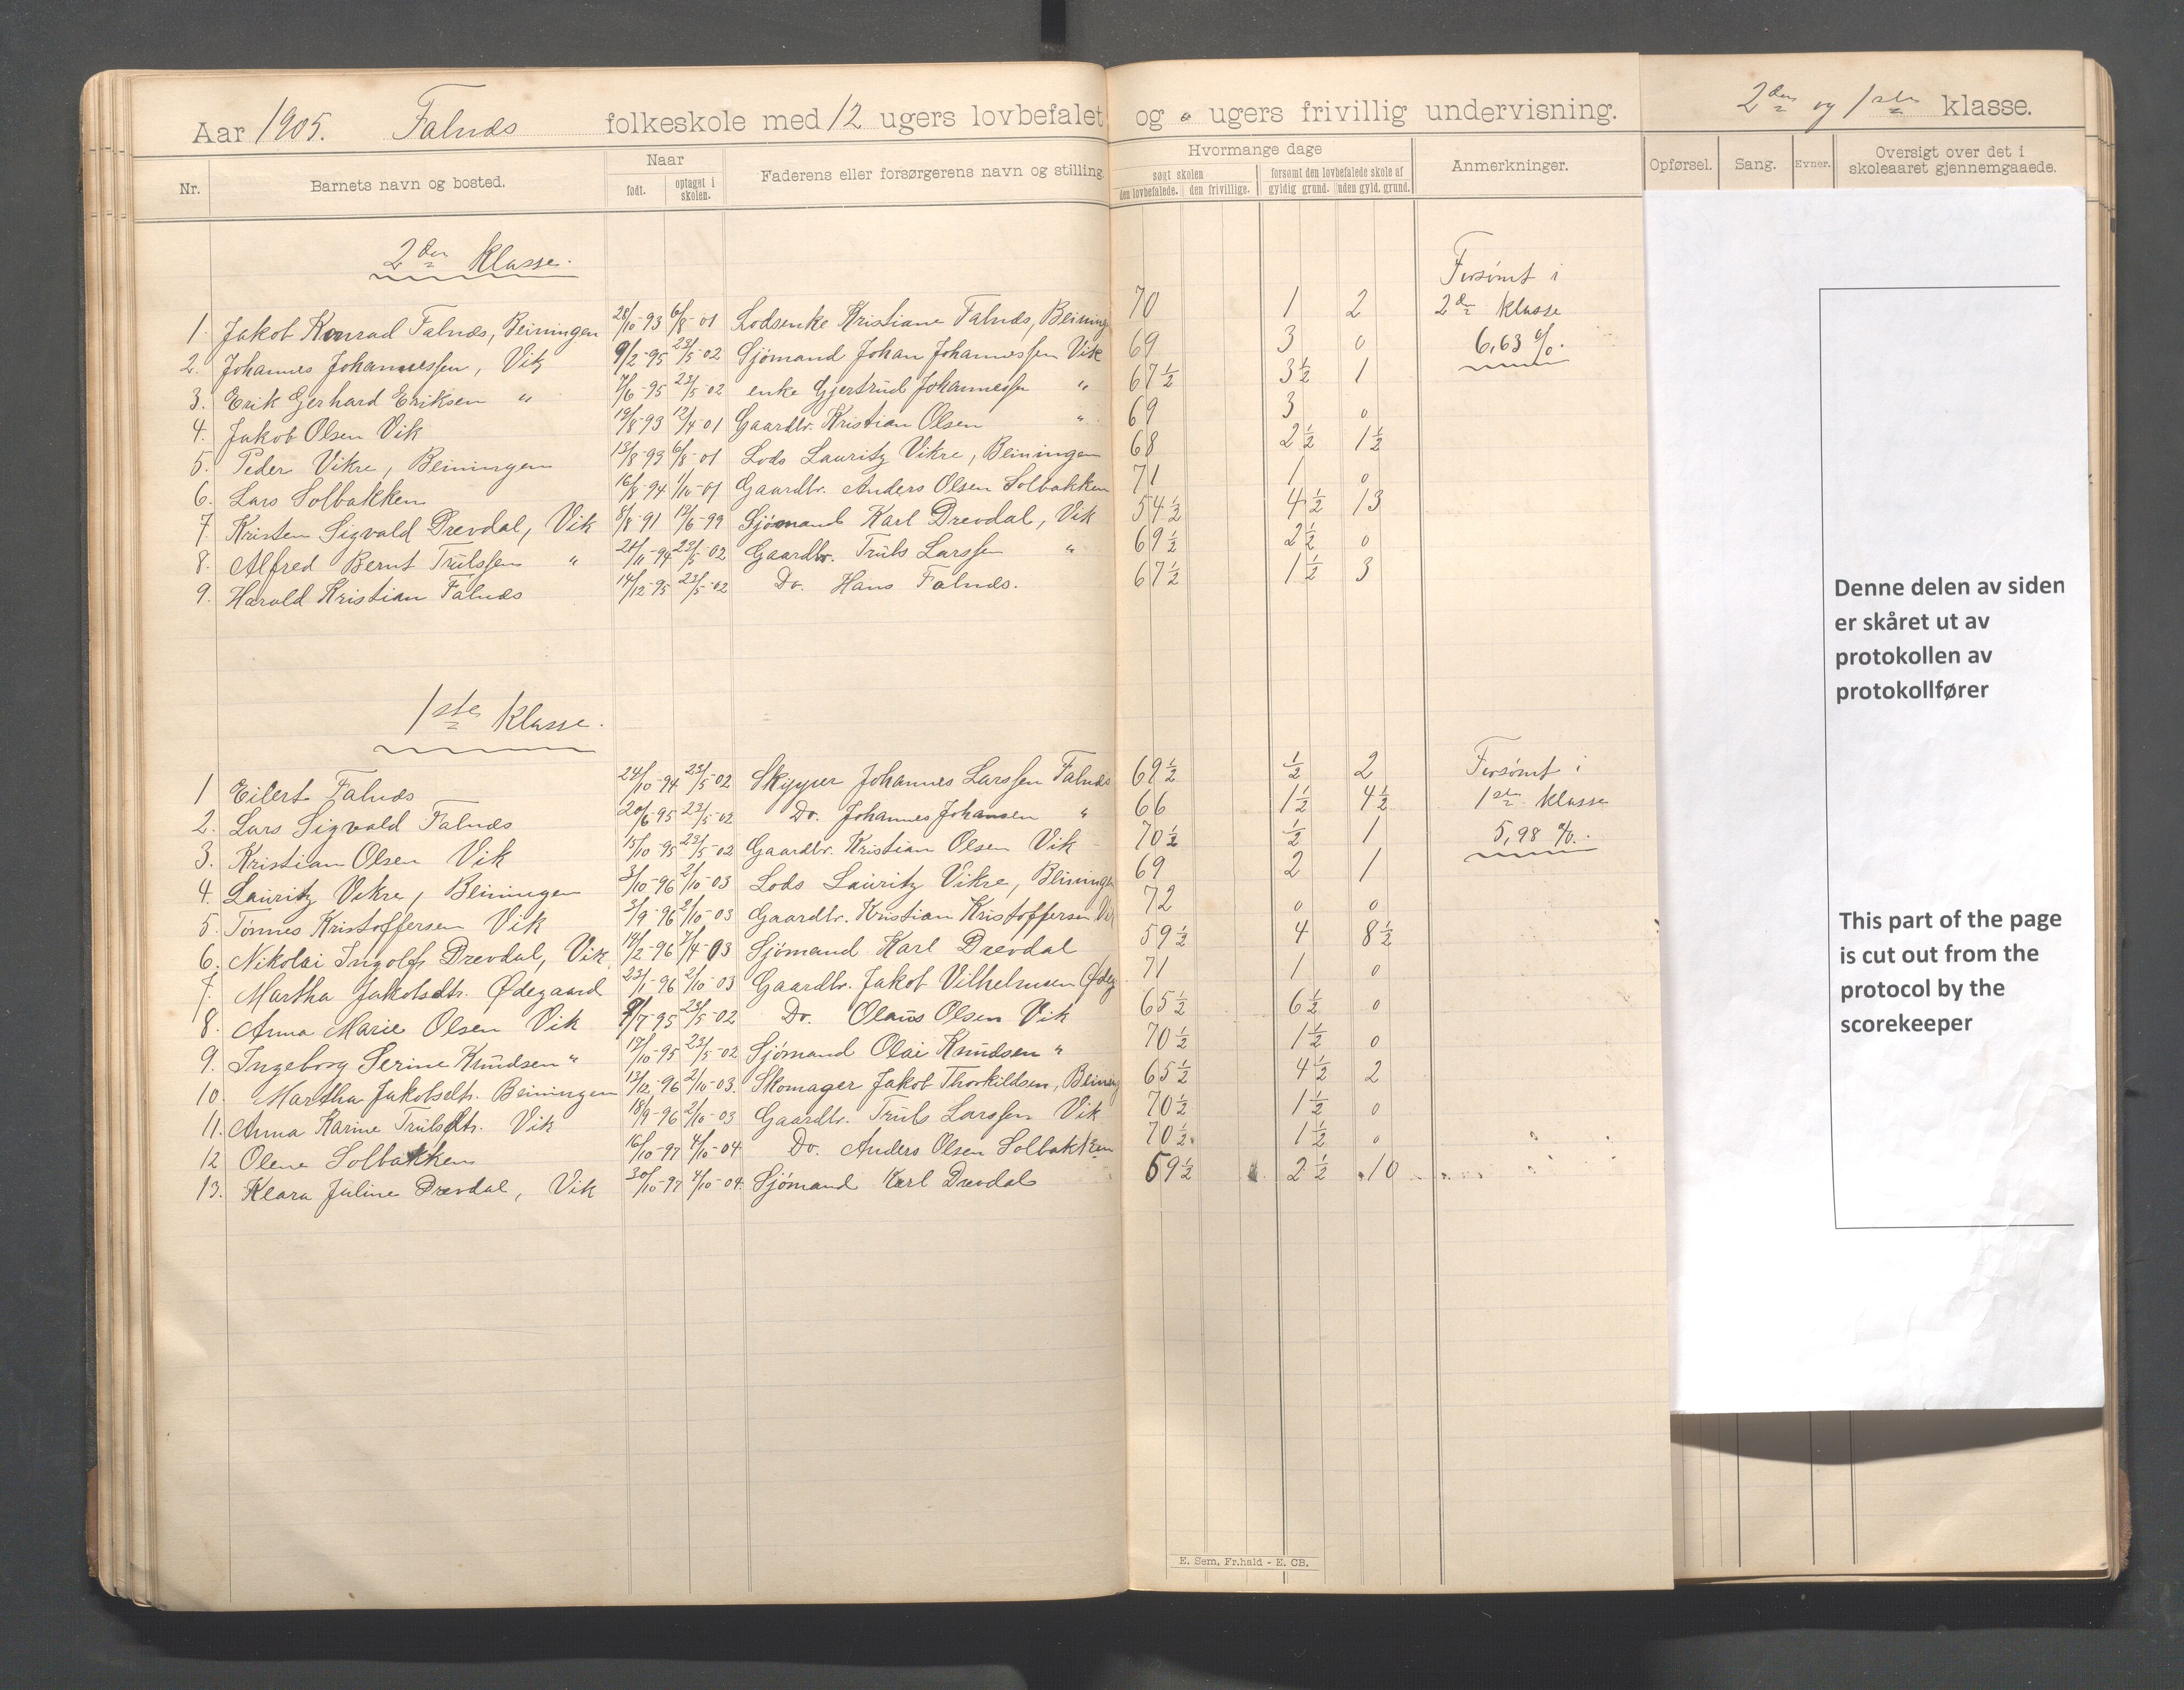 Aar 1905. Falnæs folkeskole med 12 ugers lovbefalet og 0 ugers frivillig undervisning. 2den og 1ste klasse.
Nr. Barnets navn og bosted. Naar født. optaget i skolen. Faderens eller forsørgerens navn og stilling. Hvormange dage søgt skolen den lovbefalede. den frivillige. forsømt den lovbefalede skole af gyldig grund. uden gyld. grund. Anmerkninger. Opførsel. Sang. Evner. Oversigt over det i skoleaaret gjennemgaaede.
2den Klasse.
1. Jakob Konrad Falnæs, Beiningen 28/10-93 6/8-01 Lodsenke Kristiane Falnæs, Beining 70 1 2
2. Johannes Johannessen, Vik 9/2-95 23/5-02 Sjømand Johan Johannessen Vik 69 3 0
3. Erik Gerhard Eriksen " 7/6-95 23/5-02 enke Gjertrud Johannessen " 67½ 3½ 1
4. Jakob Olsen Vik 19/8-93 12/4-01 Gaardbr. Kristian Olsen " 69 3 0
5. Peder Vikre, Beiningen 13/8-93 6/8-01 Lods Lauritz Vikre, Beiningen 68 2½ 1½
6. Lars Solbakken 16/8-94 1/10-01 Gaardbr. Anders Olsen Solbakken 71 1 0
7. Kristen Sigvald Drevdal, Vik 8/8-91 12/6-99 Sjømand Karl Drevdal, Vik 54½ 4½ 13
8. Alfred Bernt Trulssen " 21/11-94 23/5-02 Gaardbr. Truls Larssen " 69½ 2½ 0
9. Harald Kristian Falnæs 14/12-95 23/5-02 Do. Hans Falnæs. 67½ 1½ 3
Forsømt i
2den Klasse
6,63 %.
1ste Klasse.
1 Eilert Falnæs 24/10-94 23/5-02 Skipper Johannes Larssen Falnæs 69½ ½ 2
2. Lars Sigvald Falnæs 20/6-95 23/5-02 Do. Johannes Johansen " 66 1½ 4½
3. Kristian Olsen Vik 15/10-95 23/5-02 Gaardbr. Kristian Olsen Vik 70½ ½ 1
4. Lauritz Vikre, Beiningen 3/10-96 2/10-03 Lods Lauritz Vikre, Beininge 69 2 1
5. Tønnes Kristoffersen Vik 3/9-96 2/10-03 Gaardbr. Kristian Kristoffersen Vi 72 0 0
6. Nikolai Ingolf Drevdal, Vik 14/2-96 7/4-03 Sjømand Karl Drevdal 59½ 4 8½
7. Martha Jakobsdtr. Ødegaard 23/1-96 2/10-03 Gaardbr. Jakob Vilhelmsen Ødeg 71 1 0
8. Anna Marie Olsen Vik 9/7-95 23/5-02 Do. Olaus Olsen Vik 65½ 6½ 0
9. Ingeborg Serine Knudsen " 17/10-95 23/5-02 Sjømand Olai Knudsen " 70½ 1½ 0
10. Martha Jakobsdtr. Beiningen 13/12-96 2/10-03. Skomager Jakob Thorkildsen, Beining 65½ 4½ 2
11. Anna Karine Trulsdtr. Vik 18/9-96 2/10-03 Gaardbr. Truls Larssen Vik 70½ 1½ 0
12 Olene Solbakken 16/10-97 4/10-04 Do. Anders Olsen Solbakken 70½ 1½ 0
13. Klara Juline Drevdal, Vik 30/10-97 4/10-04 Sjømand Karl Drevdal 59½ 2½ 10
Forsømt i
1ste Klasse
5,98 %.
E. Sem, Fr.hald - E. CB.
Denne delen av siden
er skåret ut av
protokollen av
protokollfører
This part of the page
is cut out from the
protocol by the
scorekeeper